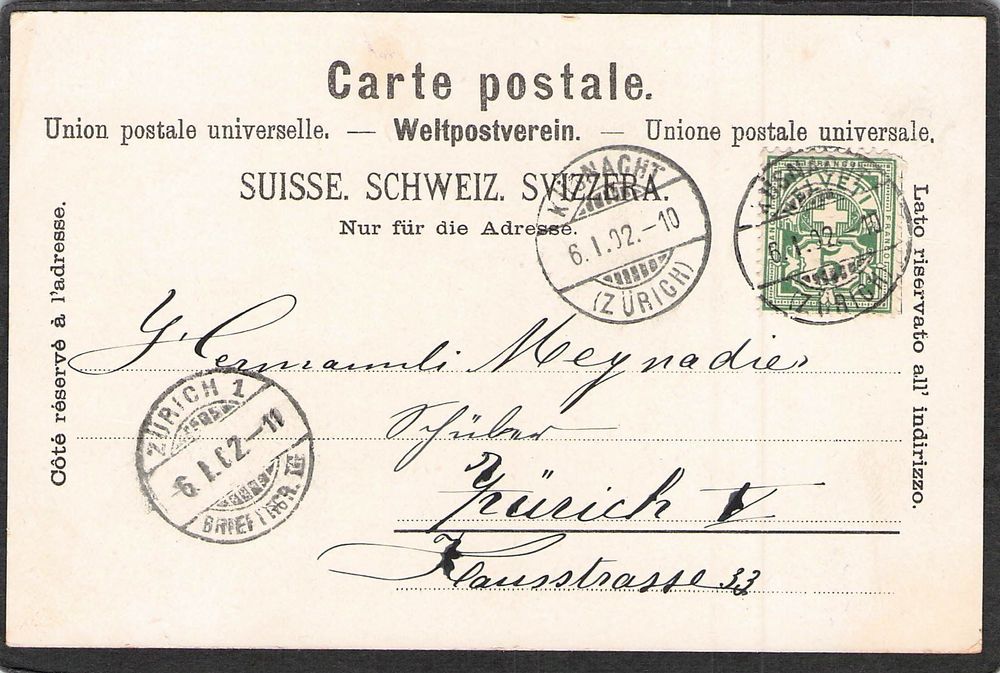 Carte postale.
Union postale universelle. — Weltpostverein. — Unione postale universale.
SUISSE. SCHWEIZ. SVIZZERA.
Nur für die Adresse.
Côté réservé à l'adresse.
Lato riservato all' indirizzo.
KÜSNACHT
6.I.02.-10
(ZÜRICH)
FRANCO
HELVETIA
FRANCO
5
KÜSNACHT
6.I.02.
(ZÜRICH)
Hermannli Meynadier
Schüler
Zürich V
Klausstrasse 33
ZÜRICH 1
-6.I.02.-11
BRIEFTRGR.